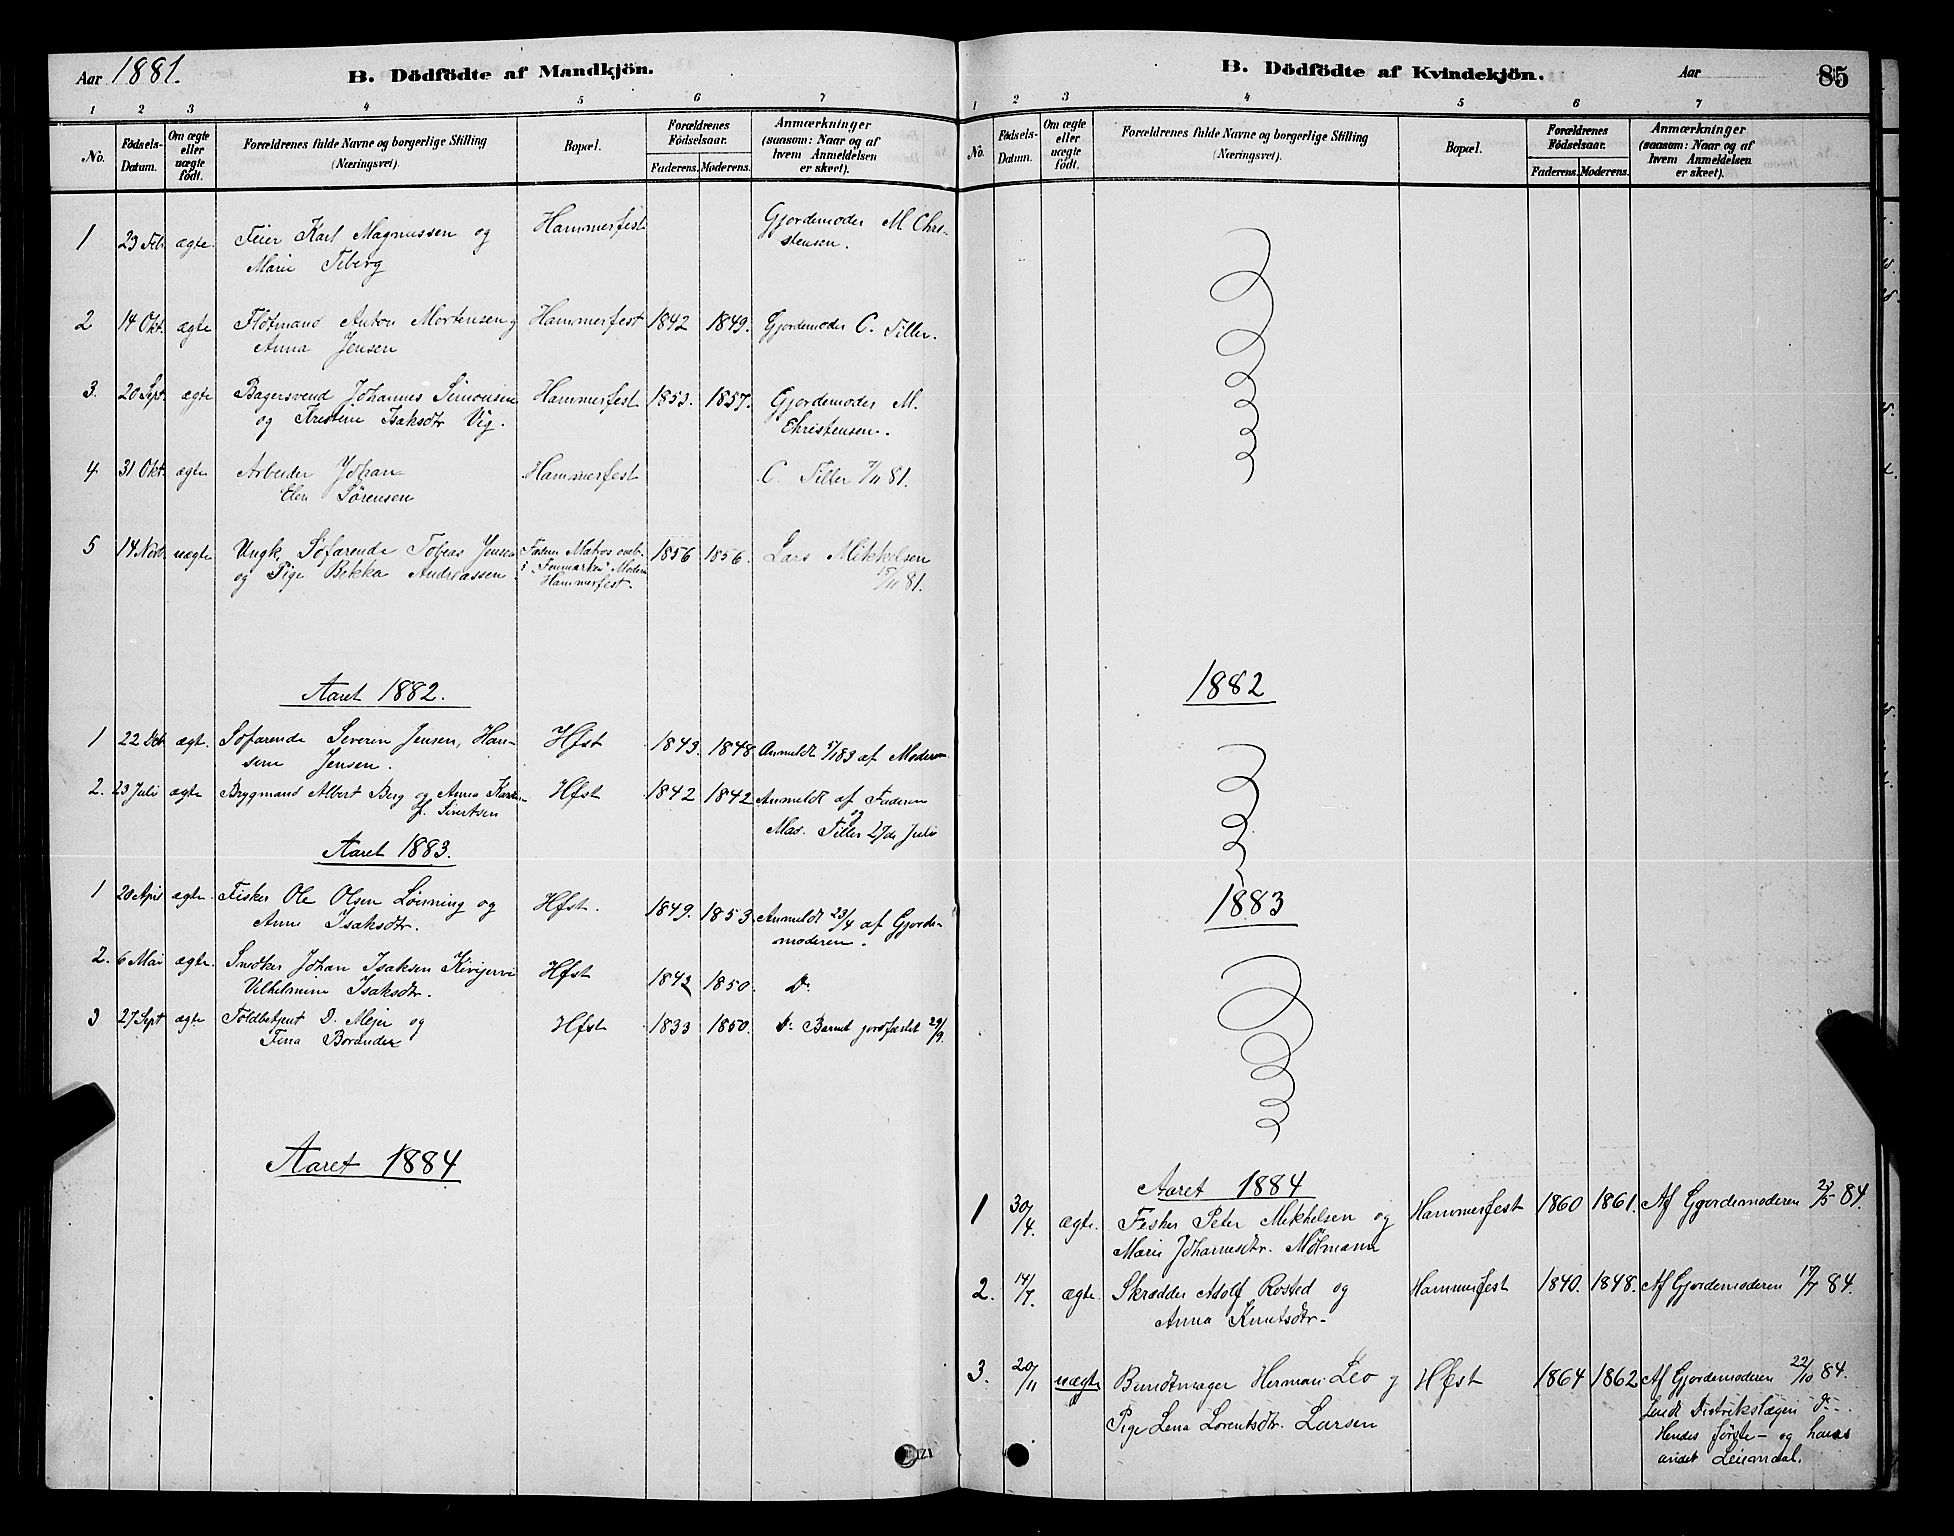 Aar 1881.
B. Dödfödte af Mandkjön.
1 2 3 4 5 6 7
No.
Födsels-Datum.
Om ægte eller uægte födt.
Forældrenes fulde Navne og borgerlige Stilling
(Næringsvei).
Bopæl.
Forældrenes Födselsaar.
Faderens. Moderens.
Anmærkninger
(saasom: Naar og af
hvem Anmeldelsen
er skeet).
1 23 Feb. ægte. Feier Karl Magnussen og Hammerfest Gjordemoder M Chri-
Marie Feberg stensen.
2 14 Okt. ægte Flötmand Anton Mortensen og Hammerfest 1842 1849. Gjordemoder C. Tiller.
Anna Jensen
3. 20 Sept. ægte Bagersvend Johannes Simonsen Hammerfest 1853. 1857. Gjordemoder M.
og Kristine Isaksdtr Vig. Christensen.
4 31 Okt. ægte Arbeider Johan Hammerfest C. Tiller 7/11 81.
Elen Sörensen
5 14 Novb. uægte Ungk. Söfarende Tobias Jensen Faderen Matros omb. 1856 1856. Lars Mikkelsen
og Pige Bekka Andreassen i "Finmarken" Moderen 15/11 81.
Hammerfest.
Aaret 1882.
1 22 Det ægt. Söfarende Severin Jensen, Han- Hfst 1843. 1848 Anmeldt 5/1 83 af Moderen
sine Jensen.
2. 23 Juli ægte Brygmand Albert Berg og Anna Karen Hfst 1842 1842 Anmeldt af Faderen
f. Sivertsen og
Mad. Tiller 27de Juli
Aaret 1883.
1 20 April ægte. Fisker Ole Olsen Lönning og Hfst. 1849. 1853. Anmeldt 23/4 af Gjorde-
Anne Isaksdtr. moderen.
2. 6 Mai ægte. Snedker Johan Isaksen Kivijervi Hfst 1842 1850. Do
Vilhelmine Isaksdtr.
3 27 Sept ægte Toldbetjent D. Mejer og Hfst 1833 1850. Do Barnet jordfæstet 29/9.
Fina Borander
Aaret 1884
121
B. Dödfödte af Kvindekjön.
Aar
85
1 2 3 4 5 6 7
No.
Födsels-Datum.
Om ægte eller uægte födt.
Forældrenes fulde Navne og borgerlige Stilling
(Næringsvei).
Bopæl.
Forældrenes Födselsaar.
Faderens. Moderens.
Anmærkninger
(saasom: Naar og af
hvem Anmeldelsen
er skeet).
1882
1883
Aaret 1884
1 30/4. ægte. Fisker Peter Mikkelsen og Hammerfest 1860 1861. Af Gjordemoderen 23/5 84.
Marie Johannesdtr. Mölmann
2. 14/7. ægte. Skrædder Adolf Rosted og Hammerfest 1840. 1848. Af Gjordemoderen 17/7 84.
Anna Knutsdtr.
3. 20/11 uægte Bundtmager Herman Leo og Hfst 1864 1862 Af Gjordemoderen 22/10 84.
Pige Lena Lorentsdtr. Larsen Distriktslægen
Hendes förste - og hans
andet Leiermaal.